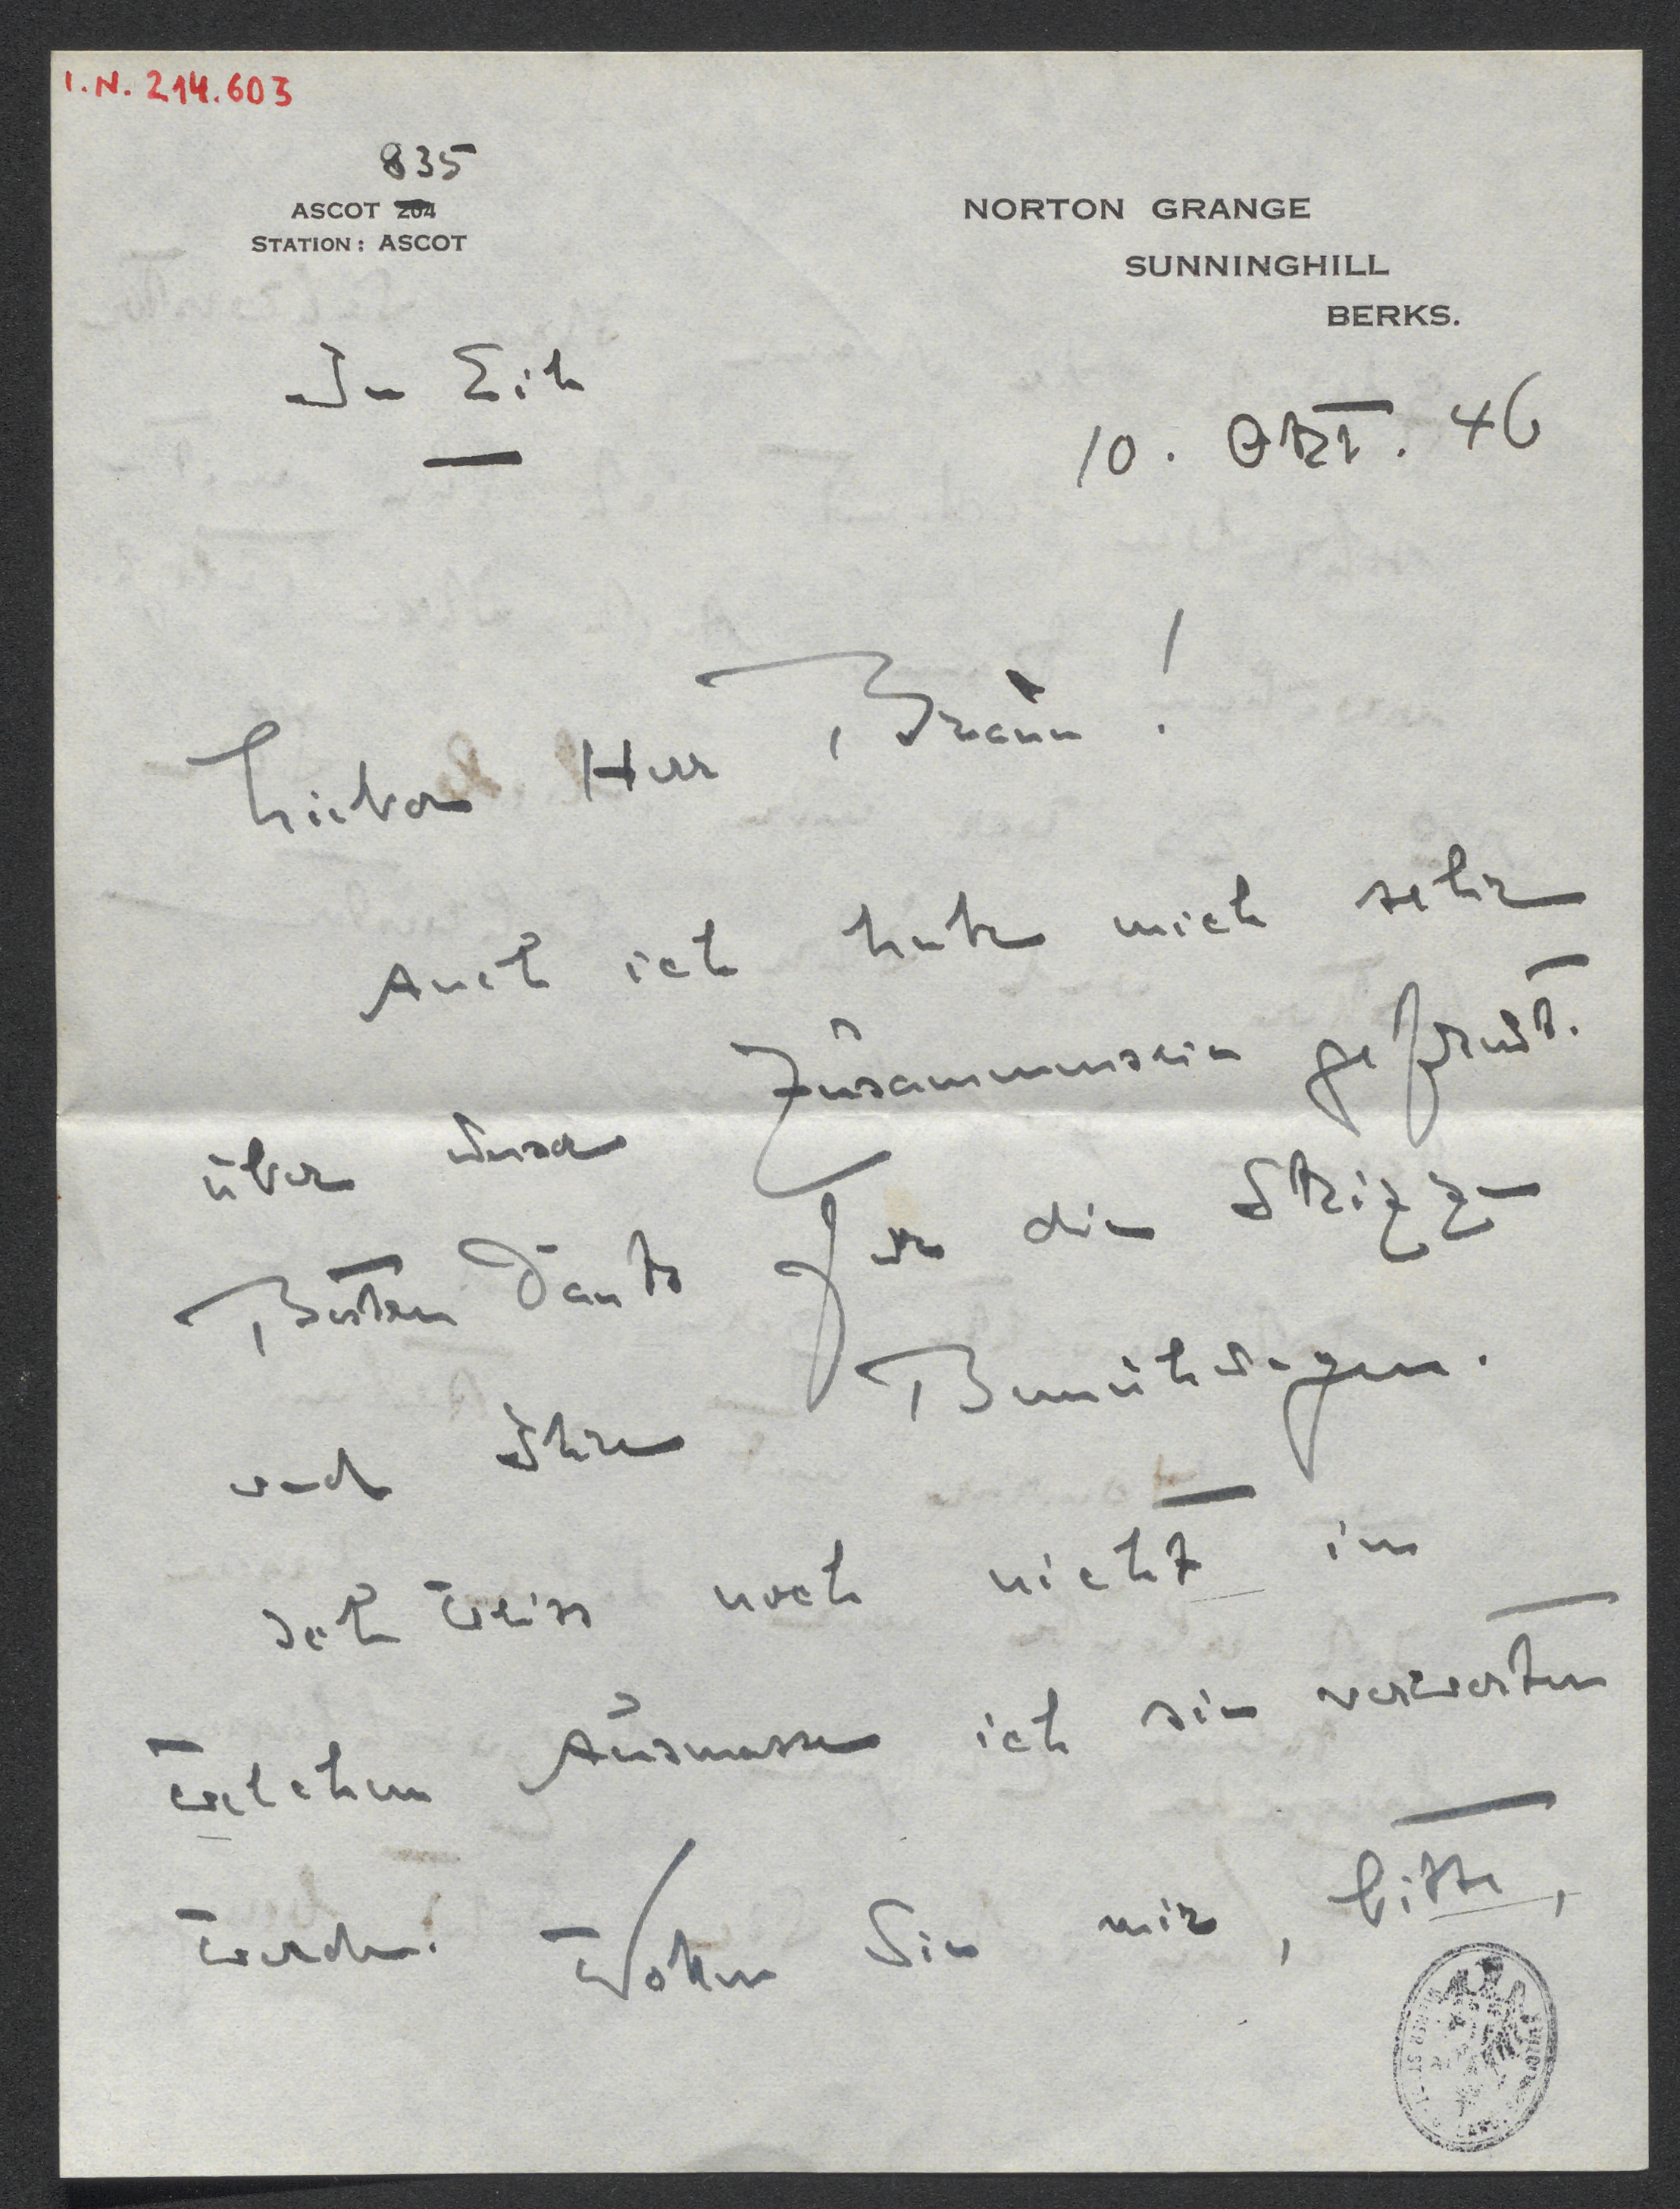 I.N. 214.603
835
ASCOT 204
STATION: ASCOT
NORTON GRANGE
SUNNINGHILL
BERKS.
In Eile
10. Okt. 46
Lieber Herr Braun!
Auch ich habe mich sehr
über unser Zusammensein gefreut.
Besten Dank für die Skizze
und Ihre Bemühungen.
Ich weiss noch nicht in
welchem Ausmasse ich sie verwerten
werde. Wollen Sie mir, bitte,